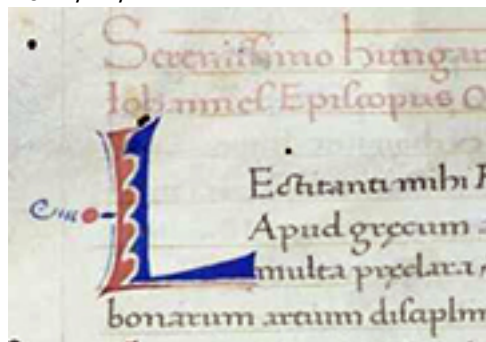 Sereniſſimo hungar
Iohanneſ Epiſcopus Q
L Ectitanti mihi P
Apud gręcum a
multa pręclara,
bonarum artium diſciplin